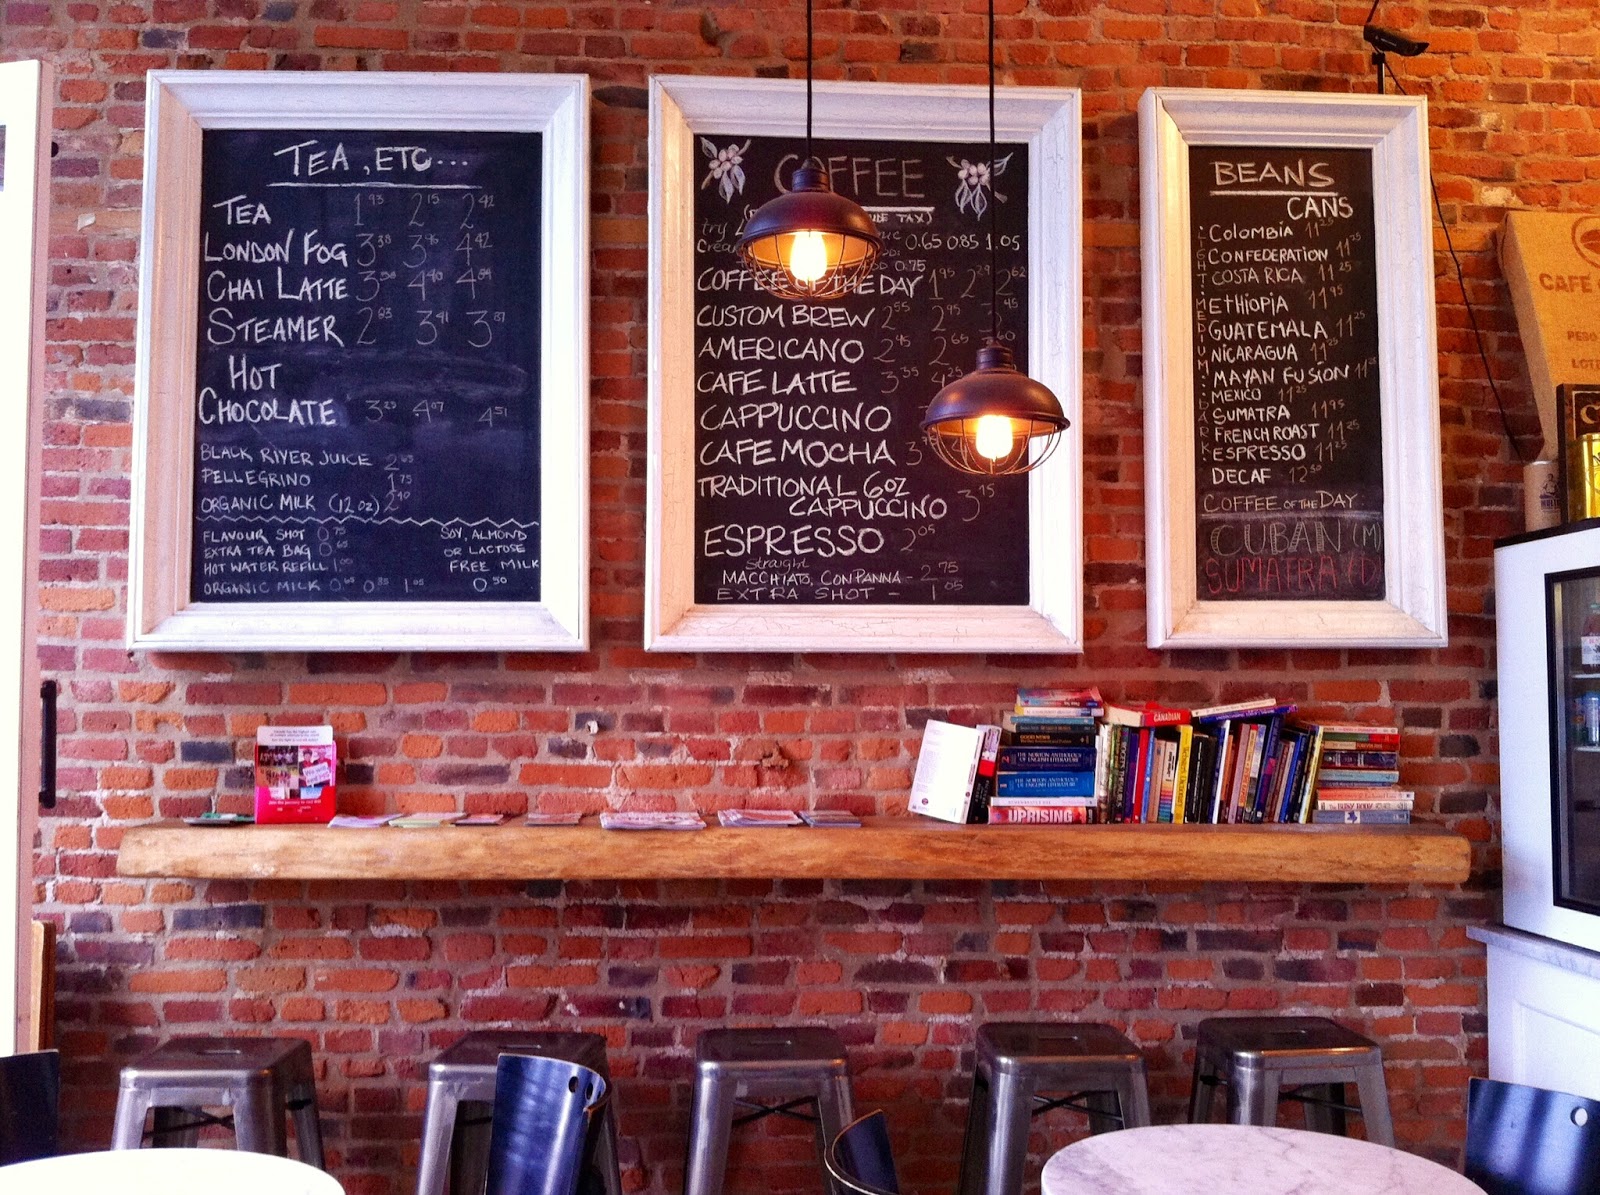 TEA, ETC...
TEA 1.93 2.15 2.42
LONDON FOG 3.38 3.96 4.42
CHAI LATTE 4.40
STEAMER 3.41
HOT
CHOCOLATE 4.07 4.51
BLACK RIVER JUICE 2.65
PELLEGRINO 1.75
ORGANIC MILK (12oz) 2.40
FLAVOUR SHOT 0.75
EXTRA TEA BAG 0.65
HOT WATER REFILL 1.00
ORGANIC MILK 0.65 0.85 1.05
SOY, ALMOND
OR LACTOSE
FREE MILK
0.50
COFFEE
TAX)
try
0.65 0.85 1.05
0.75
COFFEE OF THE DAY 1.95 2.29 2.62
CUSTOM BREW 2.55 2.95
AMERICANO 2.45 2.65
CAFE LATTE 3.35 4.25
CAPPUCCINO
CAFE MOCHA
TRADITIONAL 6oz
CAPPUCCINO 3.15
ESPRESSO 2.05
straight
MACCHIATO, CON PANNA - 2.75
EXTRA SHOT - 1.05
BEANS
CANS
LIGHT MEDIUM DARK
Colombia 11.25
CONFEDERATION 11.25
COSTA RICA 11.25
ETHIOPIA 11.95
GUATEMALA 11.25
NICARAGUA 11.25
MAYAN FUSION 11.25
MEXICO 11.25
SUMATRA 11.95
FRENCH ROAST 11.25
ESPRESSO 11.25
DECAF 12.50
COFFEE OF THE DAY:
CUBAN (M)
SUMATRA (D)
CAFE
PESO
LOTE
CANADIAN
THE NORTON ANTHOLOGY
OF ENGLISH LITERATURE
THE NORTON ANTHOLOGY
OF ENGLISH LITERATURE
UPRISING